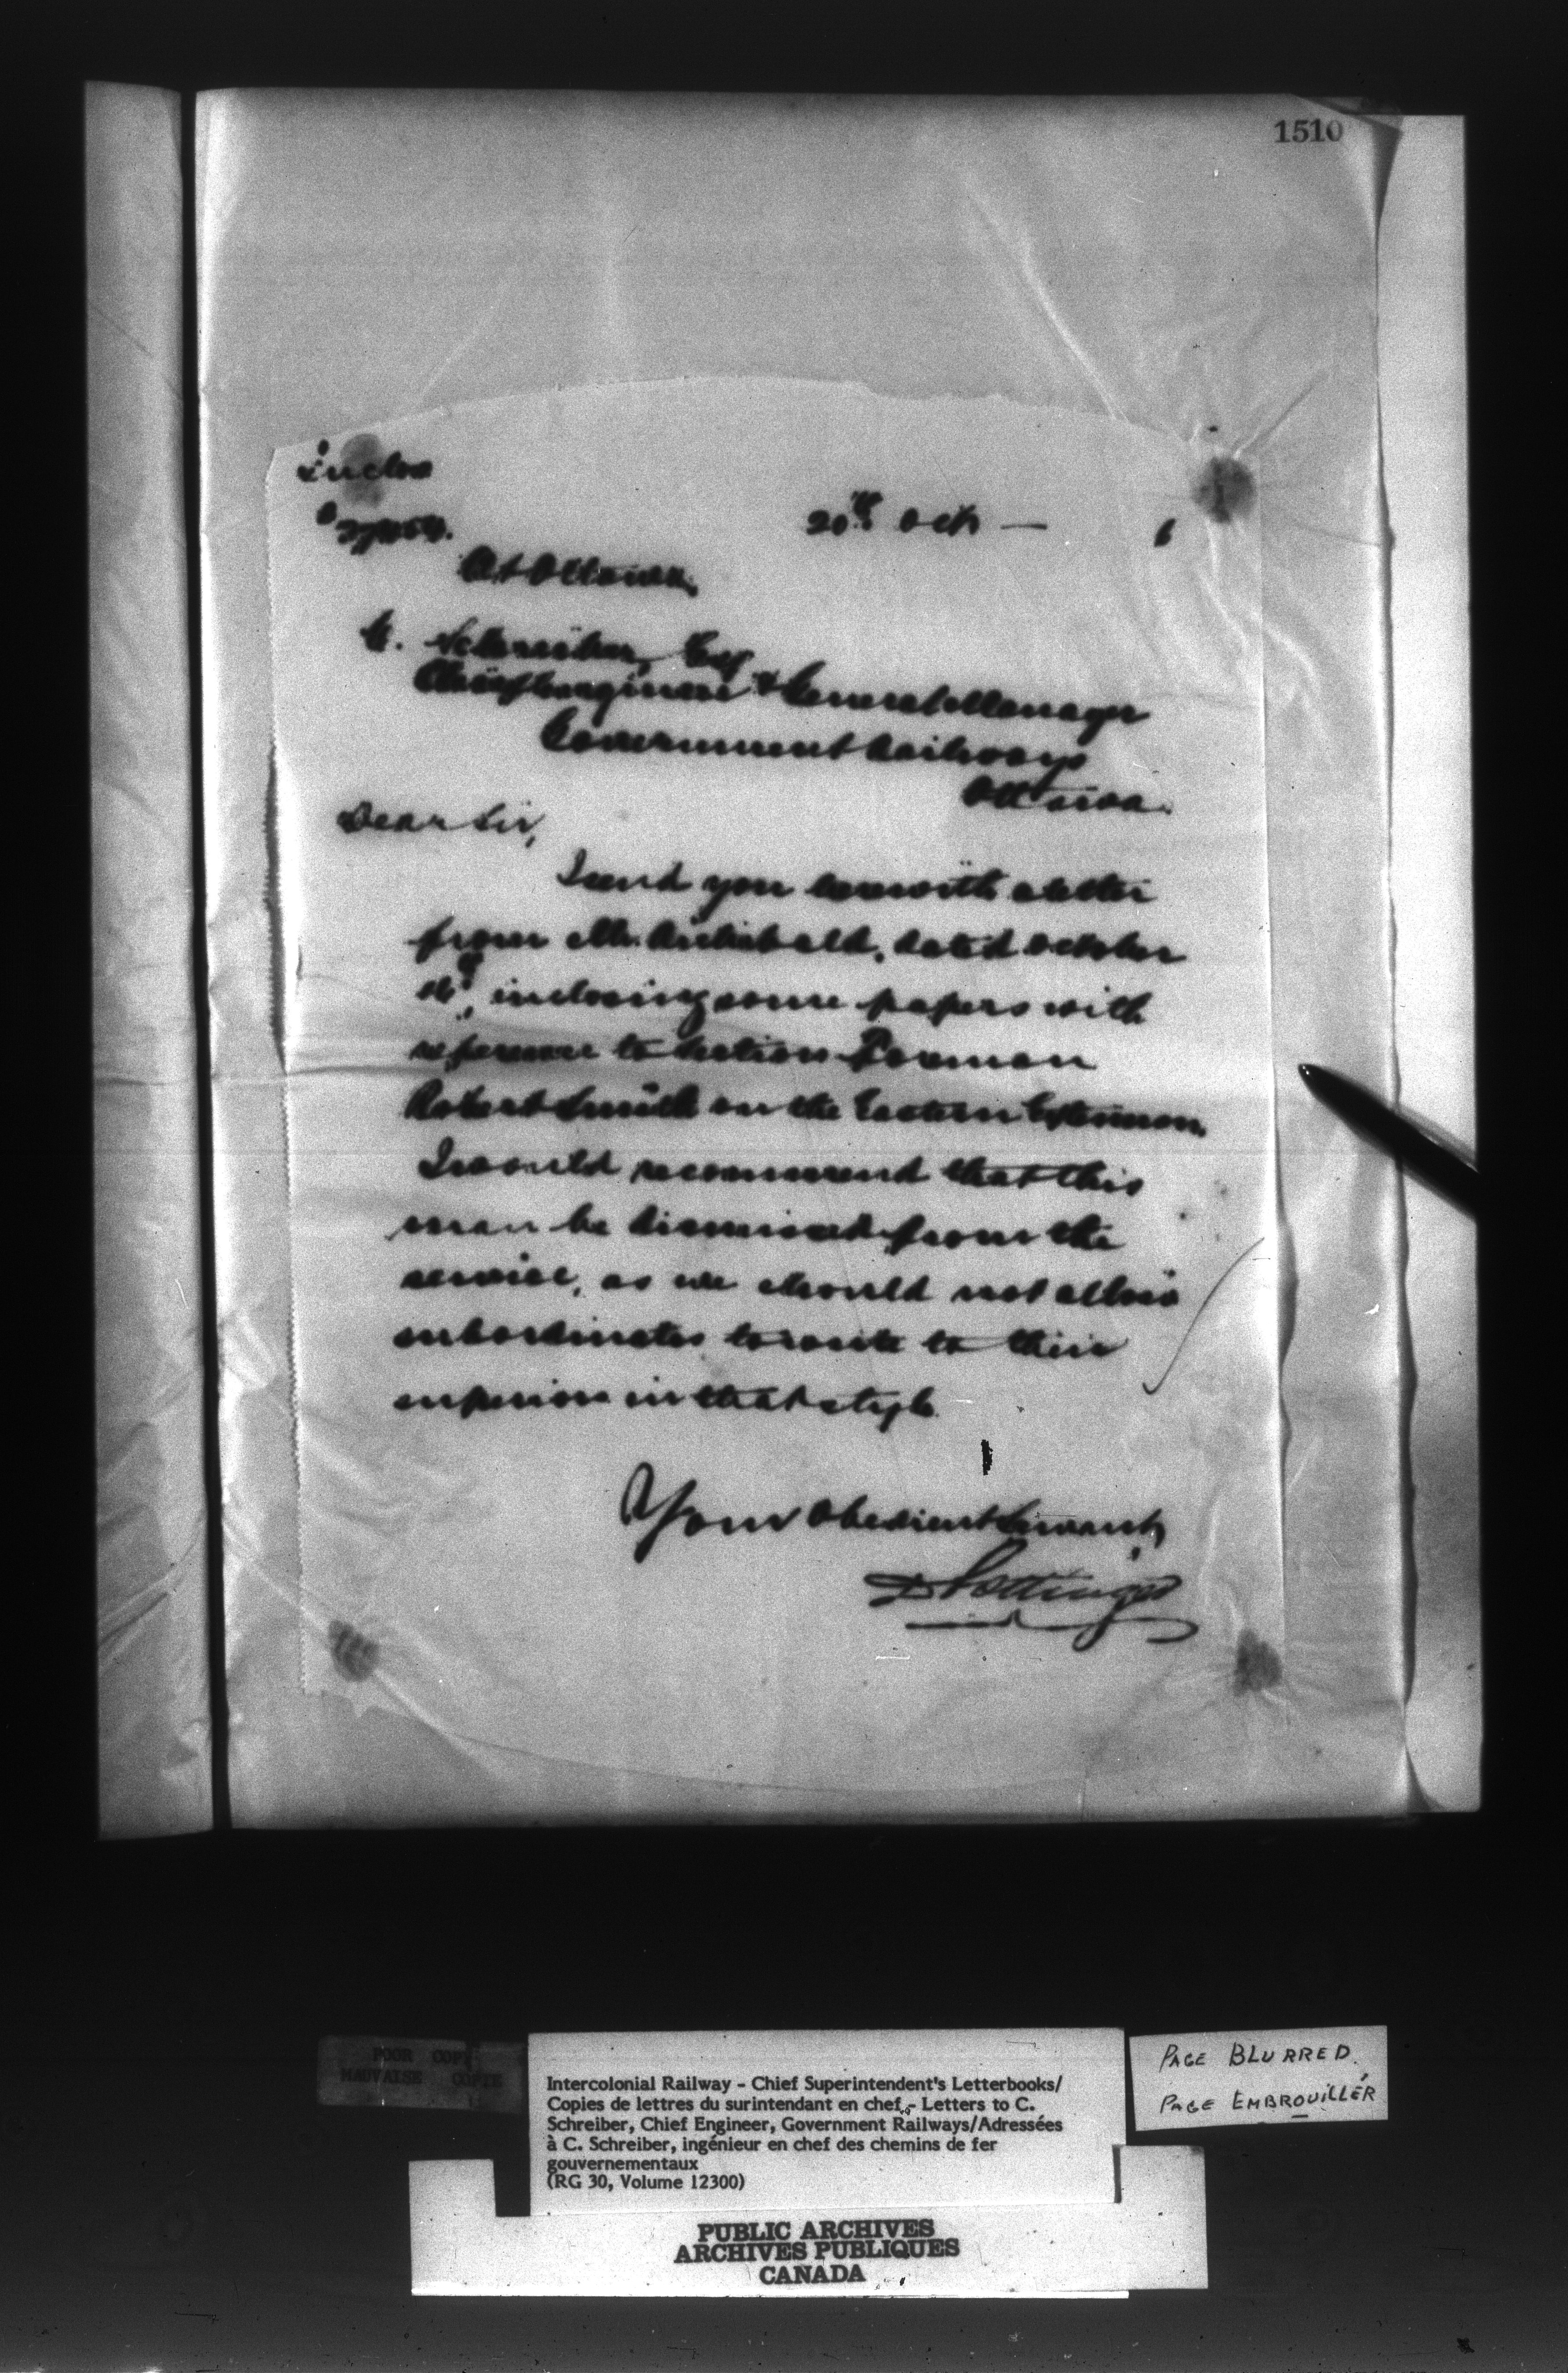 1510
Inclos
20th Oct — 6
At Ottawa,
C. Schreiber, Esq
Chief Engineer & General Manager
Government Railways
Ottawa.
Dear Sir,
I send you herewith a letter
from Mr. Archibald, dated October
inclosing some papers with
reference to Section Foreman
Robert Smith on the Eastern Extension.
I would recommend that this
man be dismissed from the
service, as we should not allow
subordinates to write to their
superiors in that style.
Your Obedient Servant,
D Pottinger
POOR COPY
MAUVAISE COPIE
Intercolonial Railway - Chief Superintendent's Letterbooks/
Copies de lettres du surintendant en chef - Letters to C.
Schreiber, Chief Engineer, Government Railways/Adressées
à C. Schreiber, ingénieur en chef des chemins de fer
gouvernementaux
(RG 30, Volume 12300)
PAGE BLURRED
PAGE EMBROUILLÉR
PUBLIC ARCHIVES
ARCHIVES PUBLIQUES
CANADA